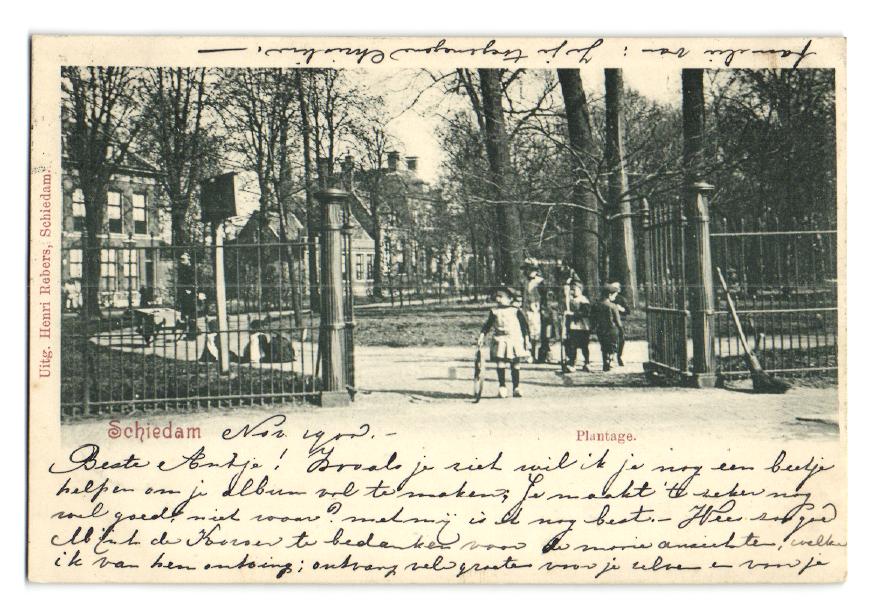 Uitg. Henri Rebers, Schiedam.
Schiedam Nov. 1900.-
Plantage.
Beste Antje! Zooals je ziet wil ik je nog een beetje
helpen om je album vol te maken; Je maakt 't zeker nog
wel goed, niet waar? met mij is 't nog best.- Wees zoo goed
de te bedanken voor de mooie ansichten, welke
ik van hen ontving; ontvang vele groeten voor je zelve en voor je
familie van : je toegenegen